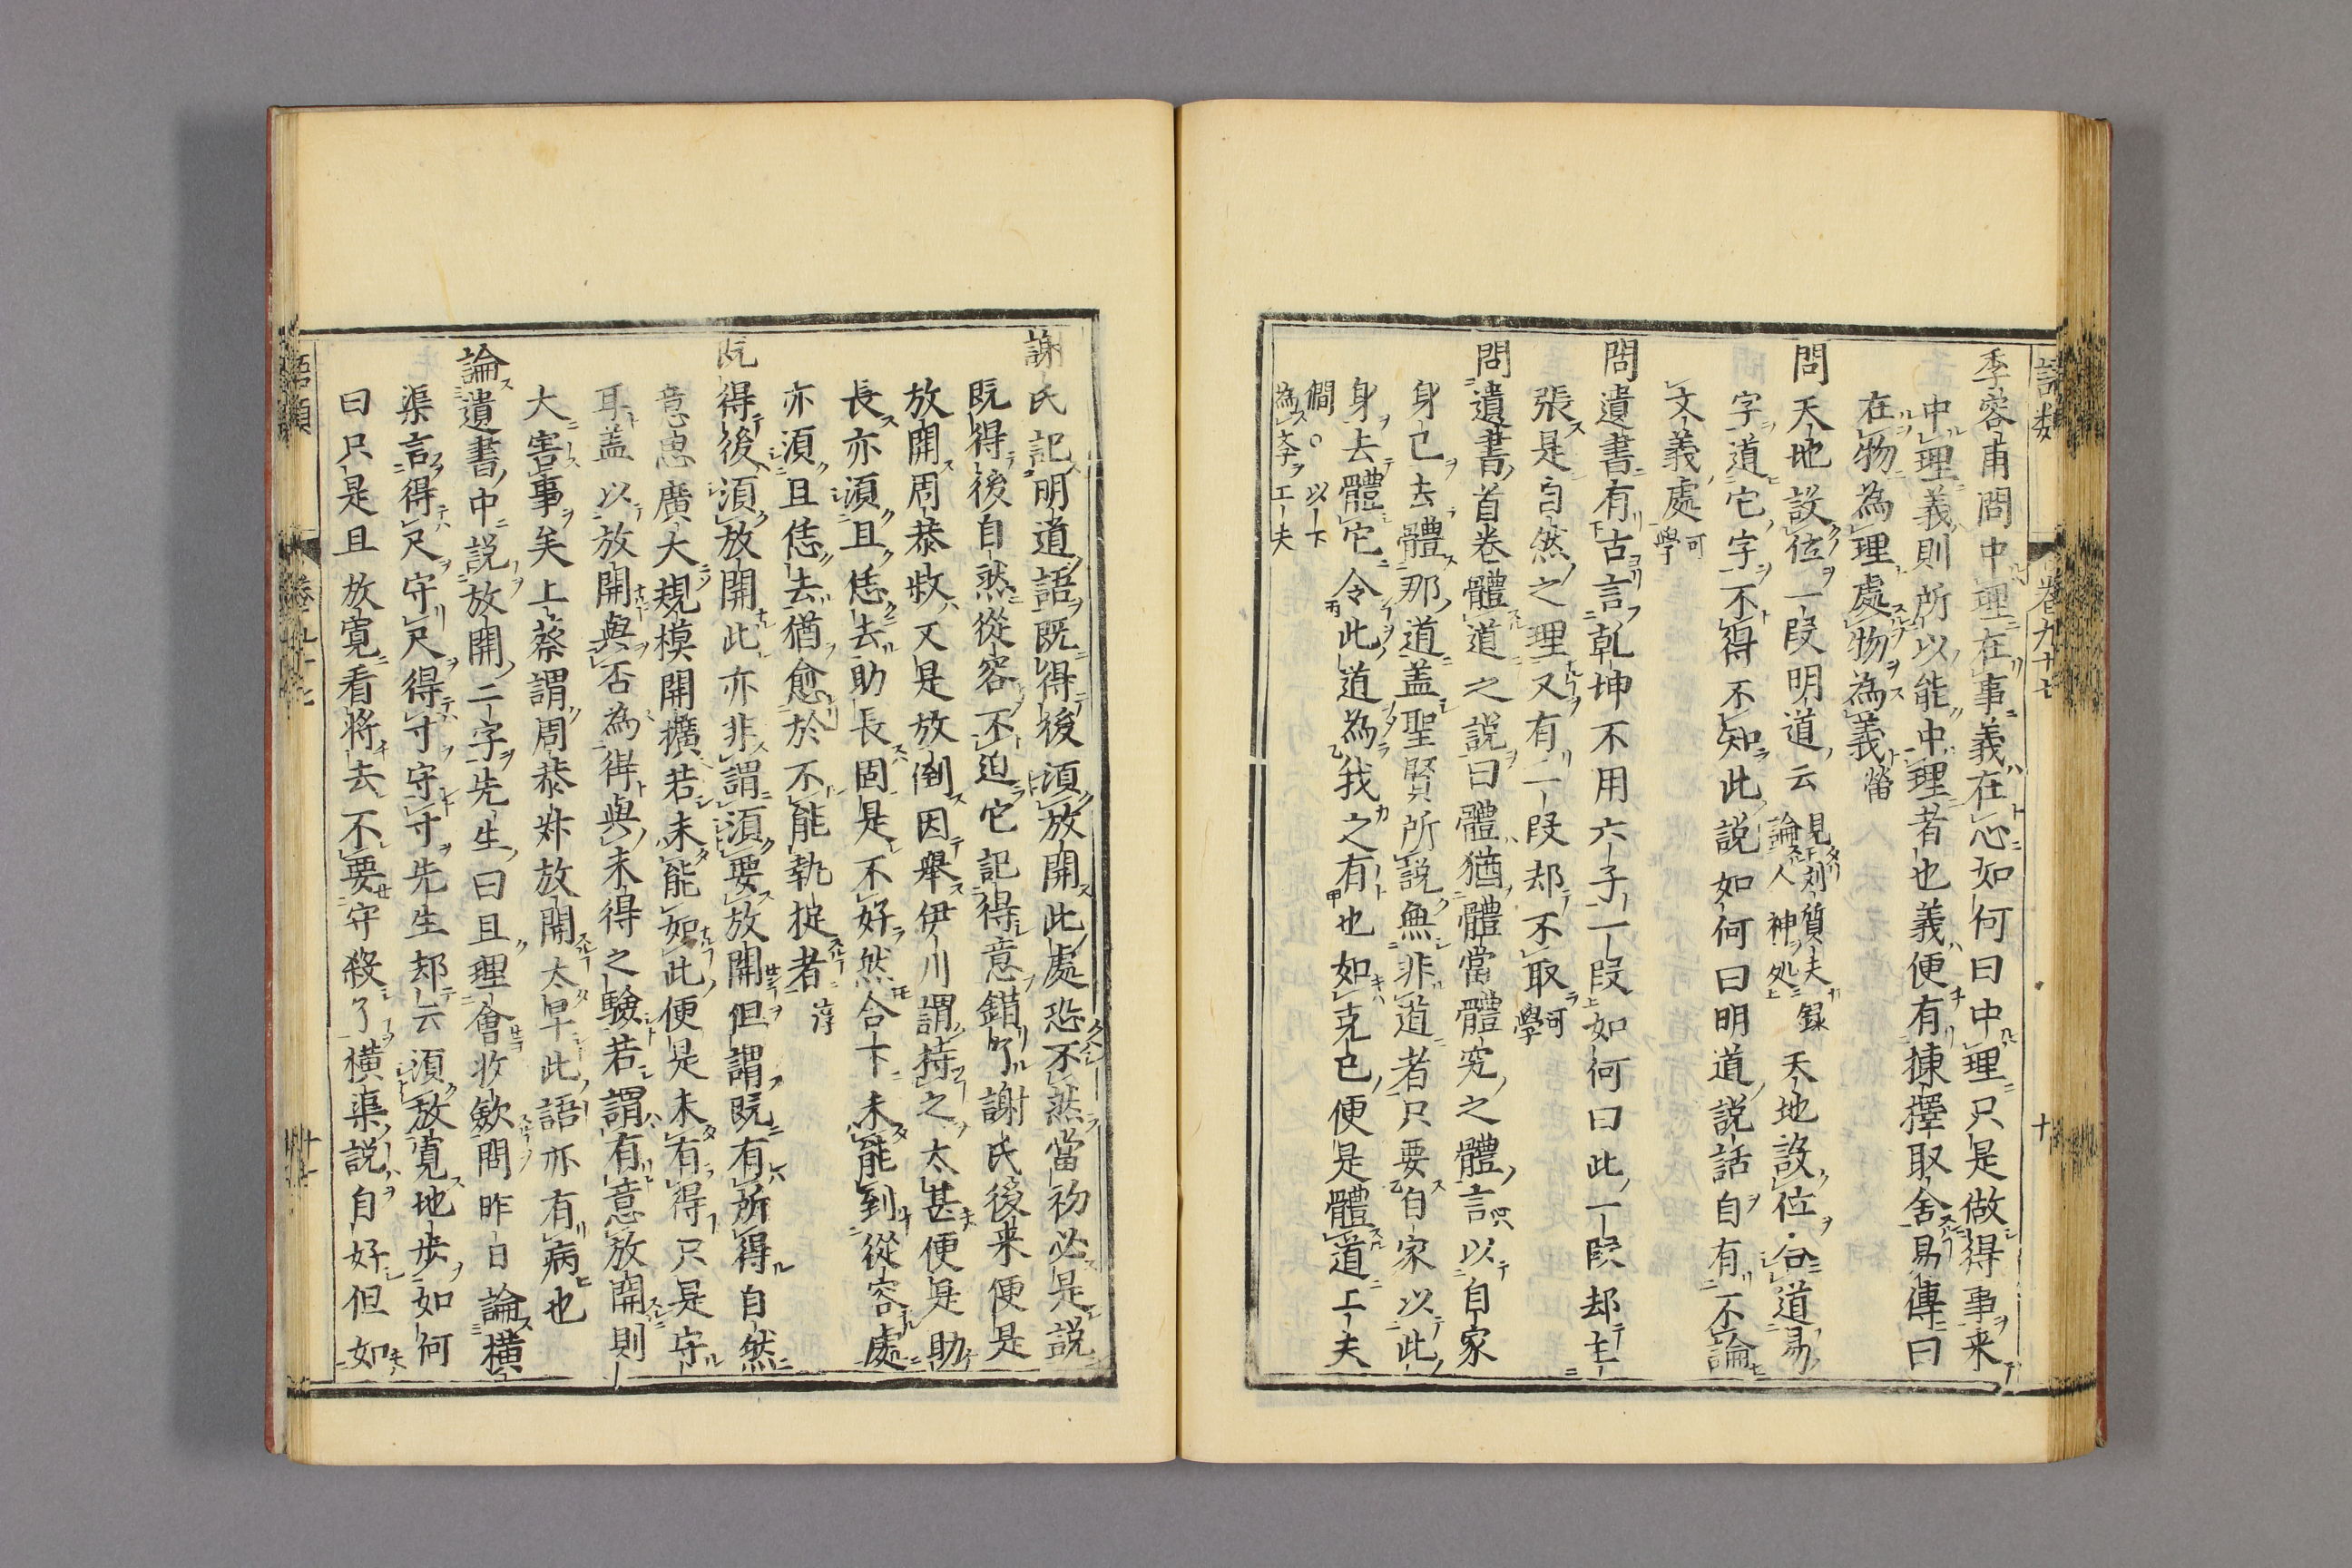 語類 卷九十七 十
季容甫問中理在事義在心如何曰中理只是做得事来
中理義則所以能中理者也義便有揀擇取舍易傳曰
在物為理處物為義㽦
問天地設位一段明道云見劉質夫録論人神処天地設位合道易
字道它字不得不知此説如何曰明道説話自有不論
文義處可學
問遺書有古言乾坤不用六子一段如何曰此一段却主
張是自然之理又有一段却不取可學
問遺書首卷體道之説曰體猶體當體究之體言以自家
身己去體那道盖聖賢所説無非道者只要自家以此
身去體它令此道為我之有也如克己便是體道工夫
僩○以下為學工夫
謝氏記明道語既得後須放開此處恐不然當初必是説
既得後自然從容不迫它記得意錯了謝氏後来便是
放開周恭叔又是放倒因舉伊川謂持之太甚便是助
長亦須且恁去助長固是不好然合下未能到從容處
亦須且恁去猶愈於不能執捉者淳
既得後須放開此亦非謂須要放開但謂既有所得自然
意思廣大規模開擴若未能如此便是未有得只是守
耳盖以放開與否為得與未得之驗若謂有意放開則
大害事矣上蔡謂周恭叔放開太早此語亦有病也
論遺書中説放開二字先生曰且理會收斂問昨日論横
渠言得尺守尺得寸守寸先生却云須放寛地步如何
曰只是且放寛看将去不要守殺了横渠説自好但如
語類 卷九十七 十一